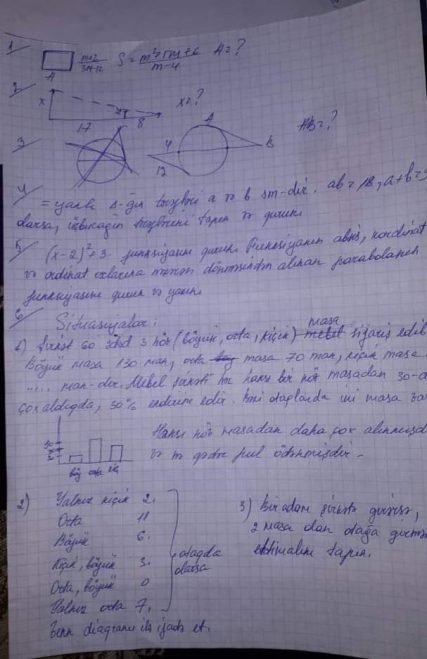 1
m+2
3m+12
S = m²+5m+6
m-4
A = ?
A
2
x
x = ?
17
8
3
A
AB = ?
4
B
12
4
= yanlı Δ-ğın a və b sm-dir. ab = a+b =
olarsa, üçbucağın tapın və qurun.
5
(x-2)²+3 funksiyasını qurun. Funksiyanın absis, kordinat
və ordinat oxlarına nəzərən alınan parabolanın
funksiyasını qurun və yazın.
6
Situasiyalar:
1) Şirkət 60 ədəd 3 növ (böyük, orta, kiçik) masa sifariş edib
Böyük masa 130 man, orta masa 70 man, kiçik masa
..... man-dır. Mebel şirkəti hər hansı bir növ masadan 30-d
çox aldıqda, 30% endirim edir. otaqlarda masa
böy orta kiç
Hansı növ masadan daha çox alınmışd
və nə qədər pul ödənmişdir -
2)
Yalnız kiçik 2.
Orta 11
Böyük 6.
Kiçik, böyük 3.
Orta, böyük 0
Yalnız orta 7.
otaqda
olarsa
Venn diaqramı ilə ifadə et.
3) Bir adam şirkətə girirsə,
2 masa olan otağa girmə
ehtimalını tapın.